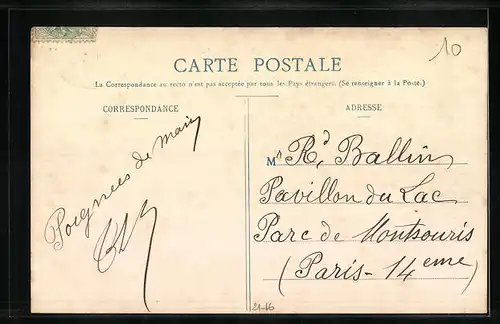 10
CARTE POSTALE
La Correspondance au recto n'est pas acceptée par tous les Pays étrangers. (Se renseigner à la Poste.)
CORRESPONDANCE
Poignées de main
ADRESSE
Mr Rd Ballin
Pavillon du Lac
Parc de Montsouris
(Paris-14eme)
21-16